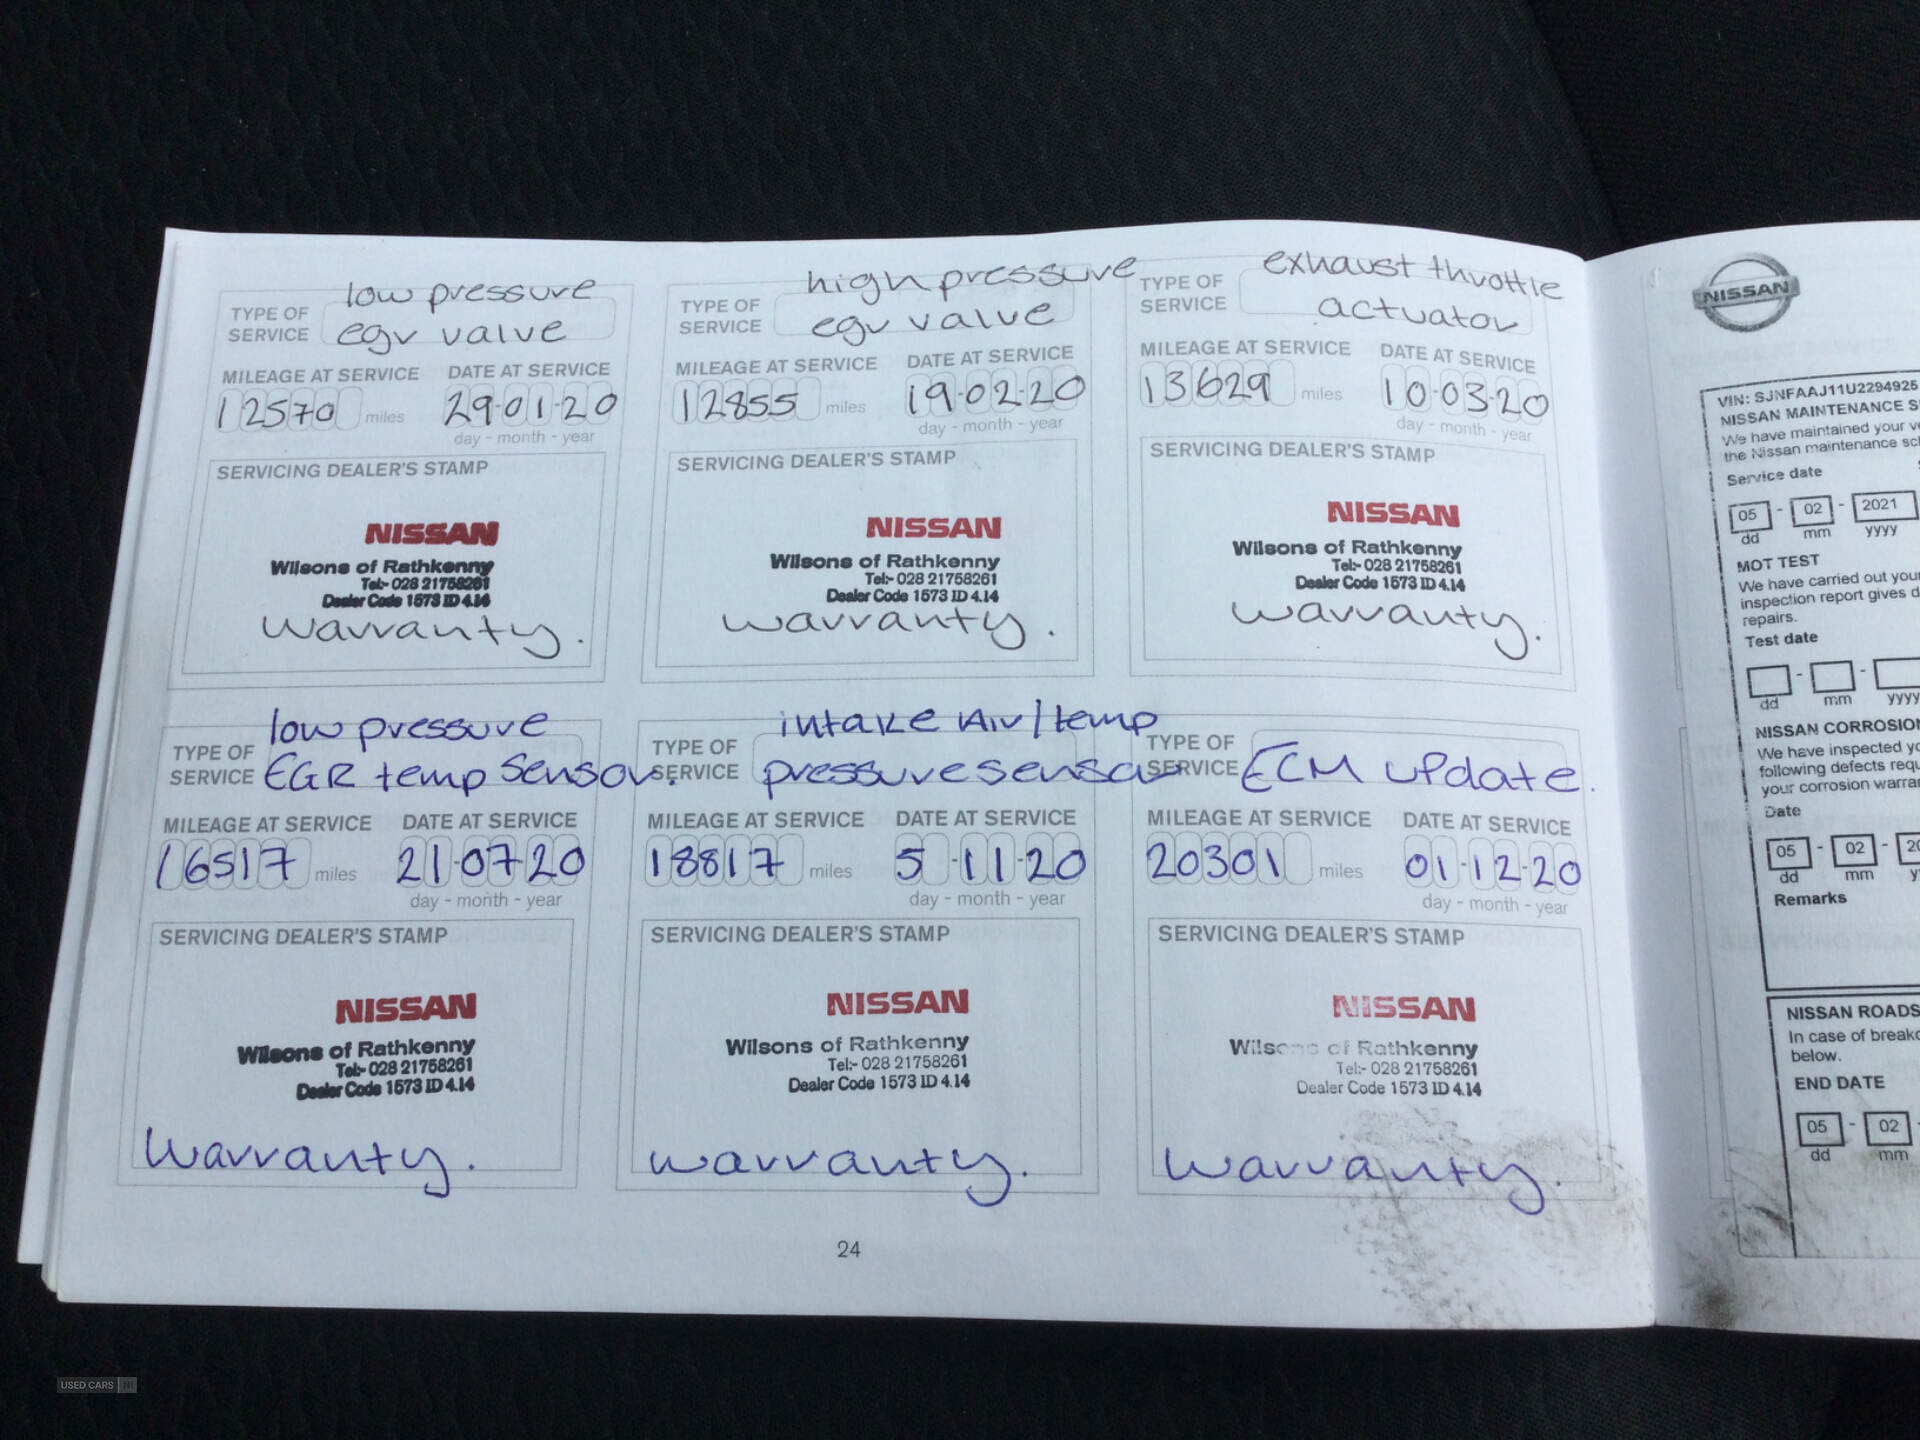 low pressure
TYPE OF
SERVICE egr valve
MILEAGE AT SERVICE DATE AT SERVICE
12570 miles 29-01-20
day - month - year
SERVICING DEALER'S STAMP
NISSAN
Wilsons of Rathkenny
Tel:- 028 21758261
Dealer Code 1573 ID 4.14
warranty.
high pressure
TYPE OF
SERVICE egr valve
MILEAGE AT SERVICE DATE AT SERVICE
12855 miles 19-02-20
day - month - year
SERVICING DEALER'S STAMP
NISSAN
Wilsons of Rathkenny
Tel:- 028 21758261
Dealer Code 1573 ID 4.14
warranty.
exhaust throttle
TYPE OF
SERVICE actuator
MILEAGE AT SERVICE DATE AT SERVICE
13629 miles 10-03-20
day - month - year
SERVICING DEALER'S STAMP
NISSAN
Wilsons of Rathkenny
Tel:- 028 21758261
Dealer Code 1573 ID 4.14
warranty.
low pressure
TYPE OF
SERVICE EGR temp sensor.
MILEAGE AT SERVICE DATE AT SERVICE
16517 miles 21-07-20
day - month - year
SERVICING DEALER'S STAMP
NISSAN
Wilsons of Rathkenny
Tel:- 028 21758261
Dealer Code 1573 ID 4.14
warranty.
intake Air/temp
TYPE OF
SERVICE pressure sensor
MILEAGE AT SERVICE DATE AT SERVICE
18817 miles 5-11-20
day - month - year
SERVICING DEALER'S STAMP
NISSAN
Wilsons of Rathkenny
Tel:- 028 21758261
Dealer Code 1573 ID 4.14
warranty.
TYPE OF
SERVICE ECM update.
MILEAGE AT SERVICE DATE AT SERVICE
20301 miles 01-12-20
day - month - year
SERVICING DEALER'S STAMP
NISSAN
Wilsons of Rathkenny
Tel:- 028 21758261
Dealer Code 1573 ID 4.14
warranty.
24
NISSAN
VIN: SJNFAAJ11U2294925
NISSAN MAINTENANCE
We have maintained your
the Nissan maintenance
Service date
05 - 02 - 2021
dd mm yyyy
MOT TEST
We have carried out your
inspection report gives
repairs.
Test date
dd mm yyyy
NISSAN CORROSION
We have inspected
following defects
your corrosion
Date
05 - 02 - 20
dd mm
Remarks
NISSAN ROADS
In case of
below.
END DATE
05 - 02 -
dd mm
USED CARS NI